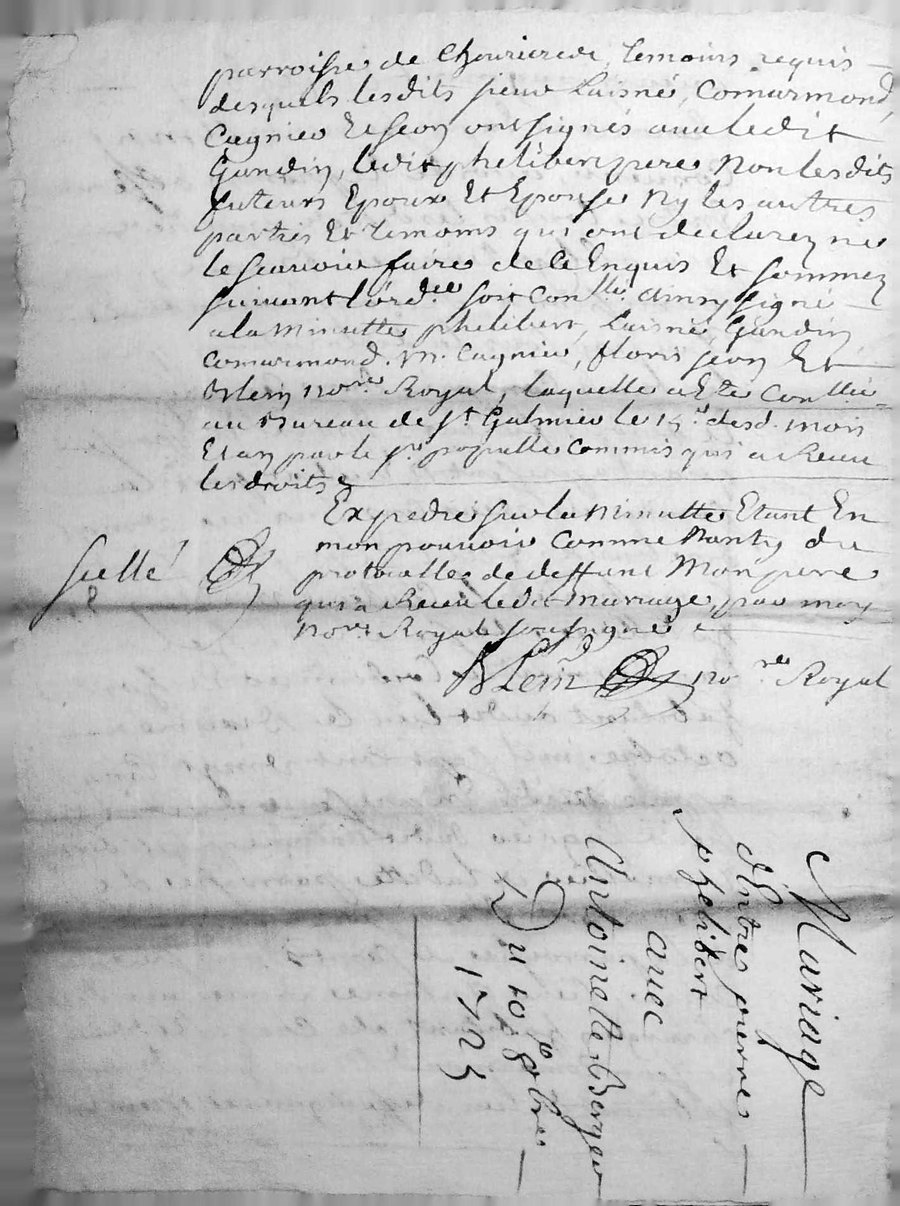 parroisse de Chevrieres, temoins requis
desquels lesdits sieur Laisné, Comarmond,
Cagnieu Et Jeon ont signés avec ledit
Gandin, ledit phelibert pere Non lesdits
futeurs Epoux Et Epouse Ny les autres
parties Et temoins qui ont declarez ne
le scauoir faire de ce Enquis Et sommez
suivant l'ord.ce soit Con.llé. ainsy signé
a la Minutte phelibert, Laisné, Gandin
Comarmond. m. Cagnieu, floris Jeon Et
Blein no.re Royal, laquelle a Eté Con.llée
au Bureau de S.t Galmier le 14.e desd. mois
Et an par le s.r Commis qui a Receu
les droits
Expedié sur la Minutte Etant En
mon pouvoir Comme Nanty du
protocolle de deffunt Mon pere
qui a Receu ledit Mariage, par moy
no.re Royal soussigné
Scellé
Blein no.re Royal
Mariage
d'Entre pierre
phelibert
avec
Antoinette Berger
Du 10.e 8bre
1725